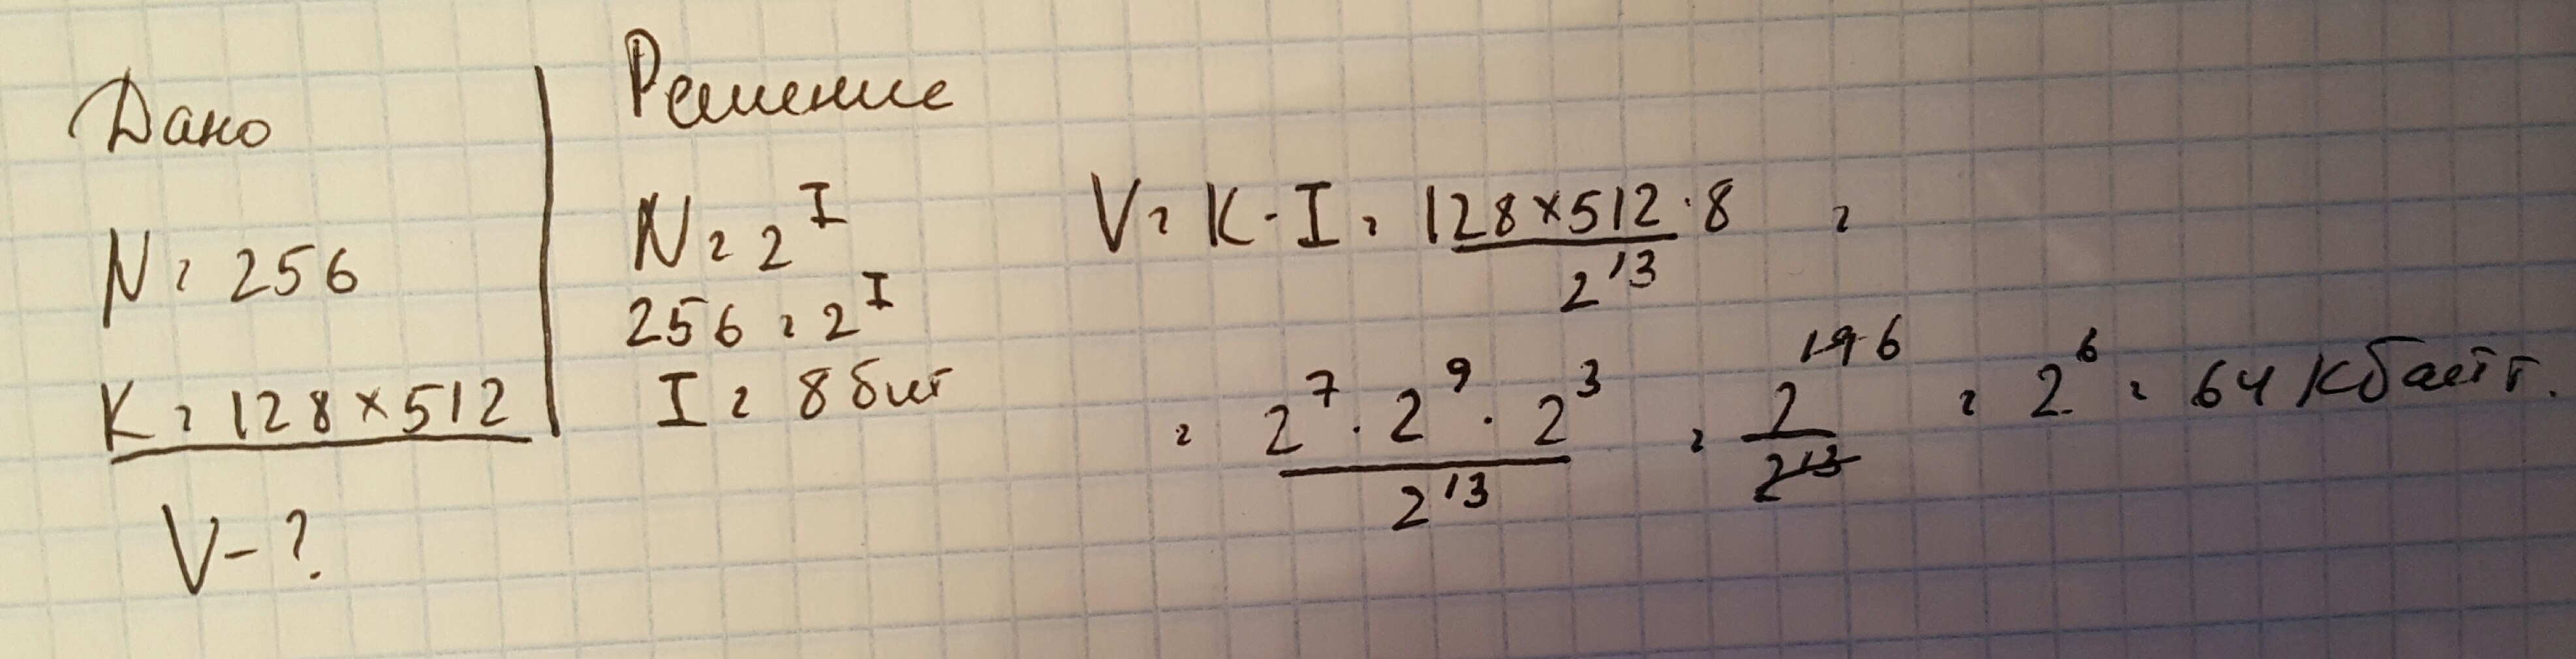 Дано
N = 256
K = 128×512
V - ?
Решение
N = 2^I
256 = 2^I
I = 8 бит
V = K · I = 128×512·8 / 2^13 =
= 2^7 · 2^9 · 2^3 / 2^13 = 2^19 6 / 2^13 = 2^6 = 64 Кбайт.